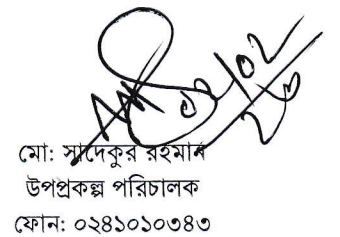 মো: সাদেকুর রহমান
উপপ্রকল্প পরিচালক
ফোন: ০২৪১০১০৩৪৩